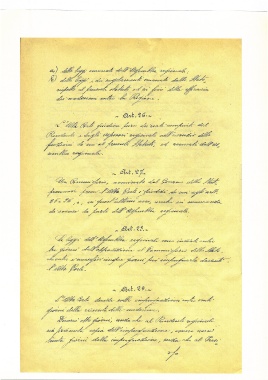 a) delle leggi emanate dall'Assemblea regionale;
b) delle leggi e dei regolamenti emanati dallo Stato,
rispetto al presente Statuto ed ai fini della efficacia
dei medesimi entro la Regione.
- Art. 26 -
L'Alta Corte giudica pure dei reati compiuti dal
Presidente e dagli Assessori regionali nell'esercizio delle
funzioni di cui al presente Statuto, ed accusati dall'As-
semblea regionale.
- Art. 27 -
Un Commissario, nominato dal Governo dello Stato,
promuove presso l'Alta Corte i giudizi di cui agli artt.
25 e 26 e, in quest'ultimo caso, anche in mancanza
di accuse da parte dell'Assemblea regionale.
- Art. 28 -
Le leggi dell'Assemblea regionale sono inviate entro
tre giorni dall'approvazione al Commissario dello Stato
che entro i successivi cinque giorni può impugnarle davanti
l'Alta Corte.
- Art. 29 -
L'Alta Corte decide sulle impugnazioni entro venti
giorni dalla ricevuta delle medesime.
Decorsi otto giorni, senza che al Presidente regionale
sia pervenuta copia dell'impugnazione, ovvero scorsi
trenta giorni dalla impugnazione, senza che al Presi-